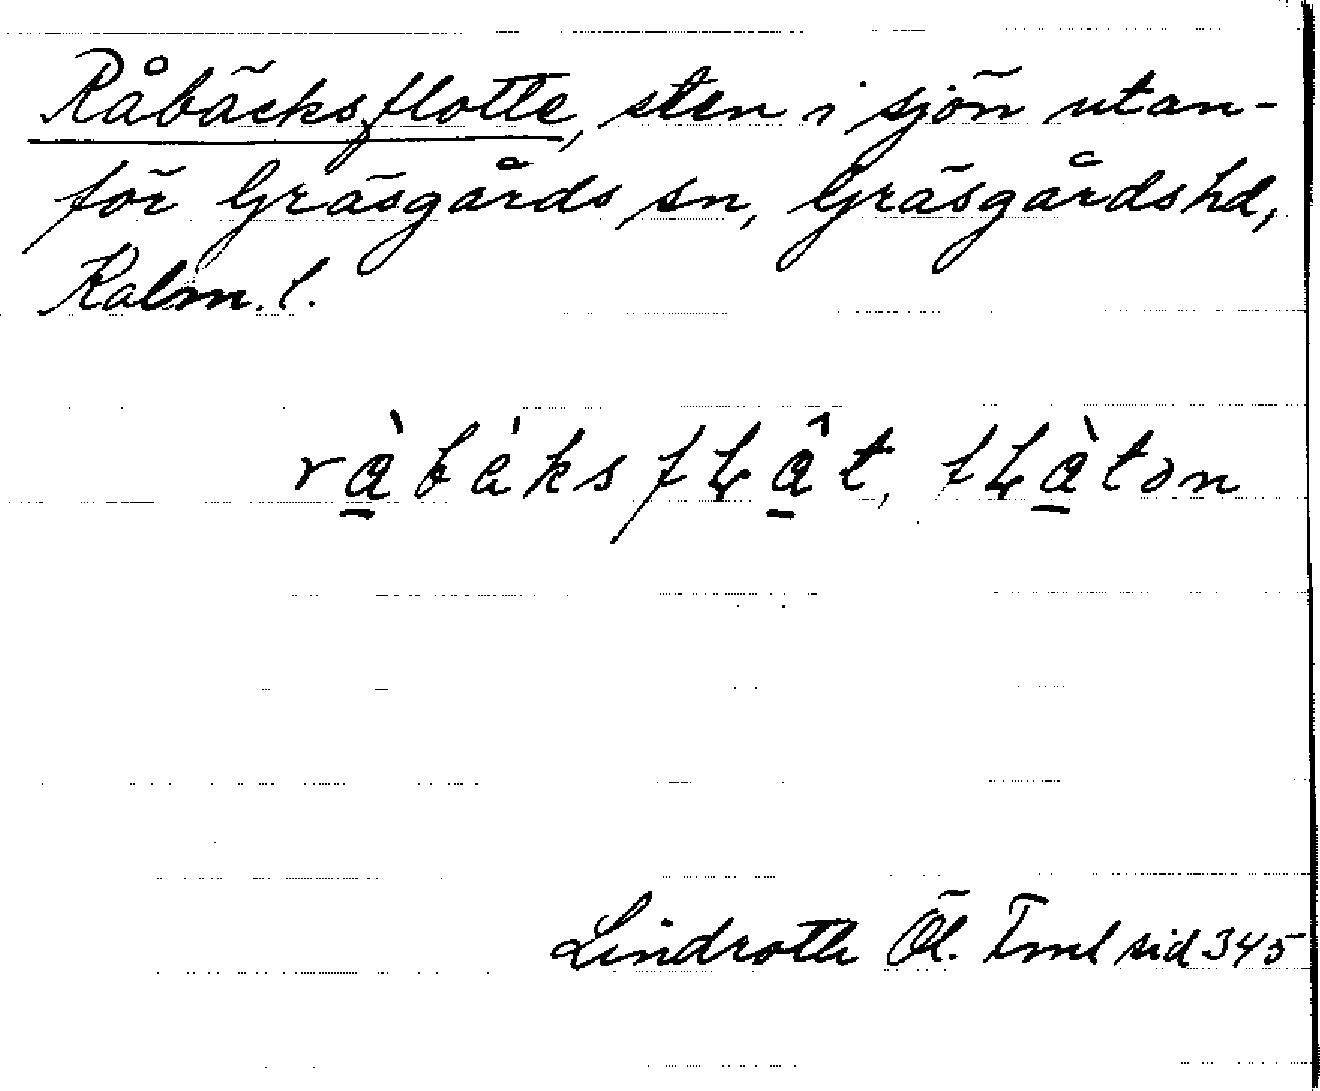 Råbäcksflotte, sten i sjön utan-
för Gräsgårds sn, Gräsgårds hd,
Kalm. l.
rà̱báksfLâ̱t, fLà̱tən
Lindroth Öl. Fml sid 345